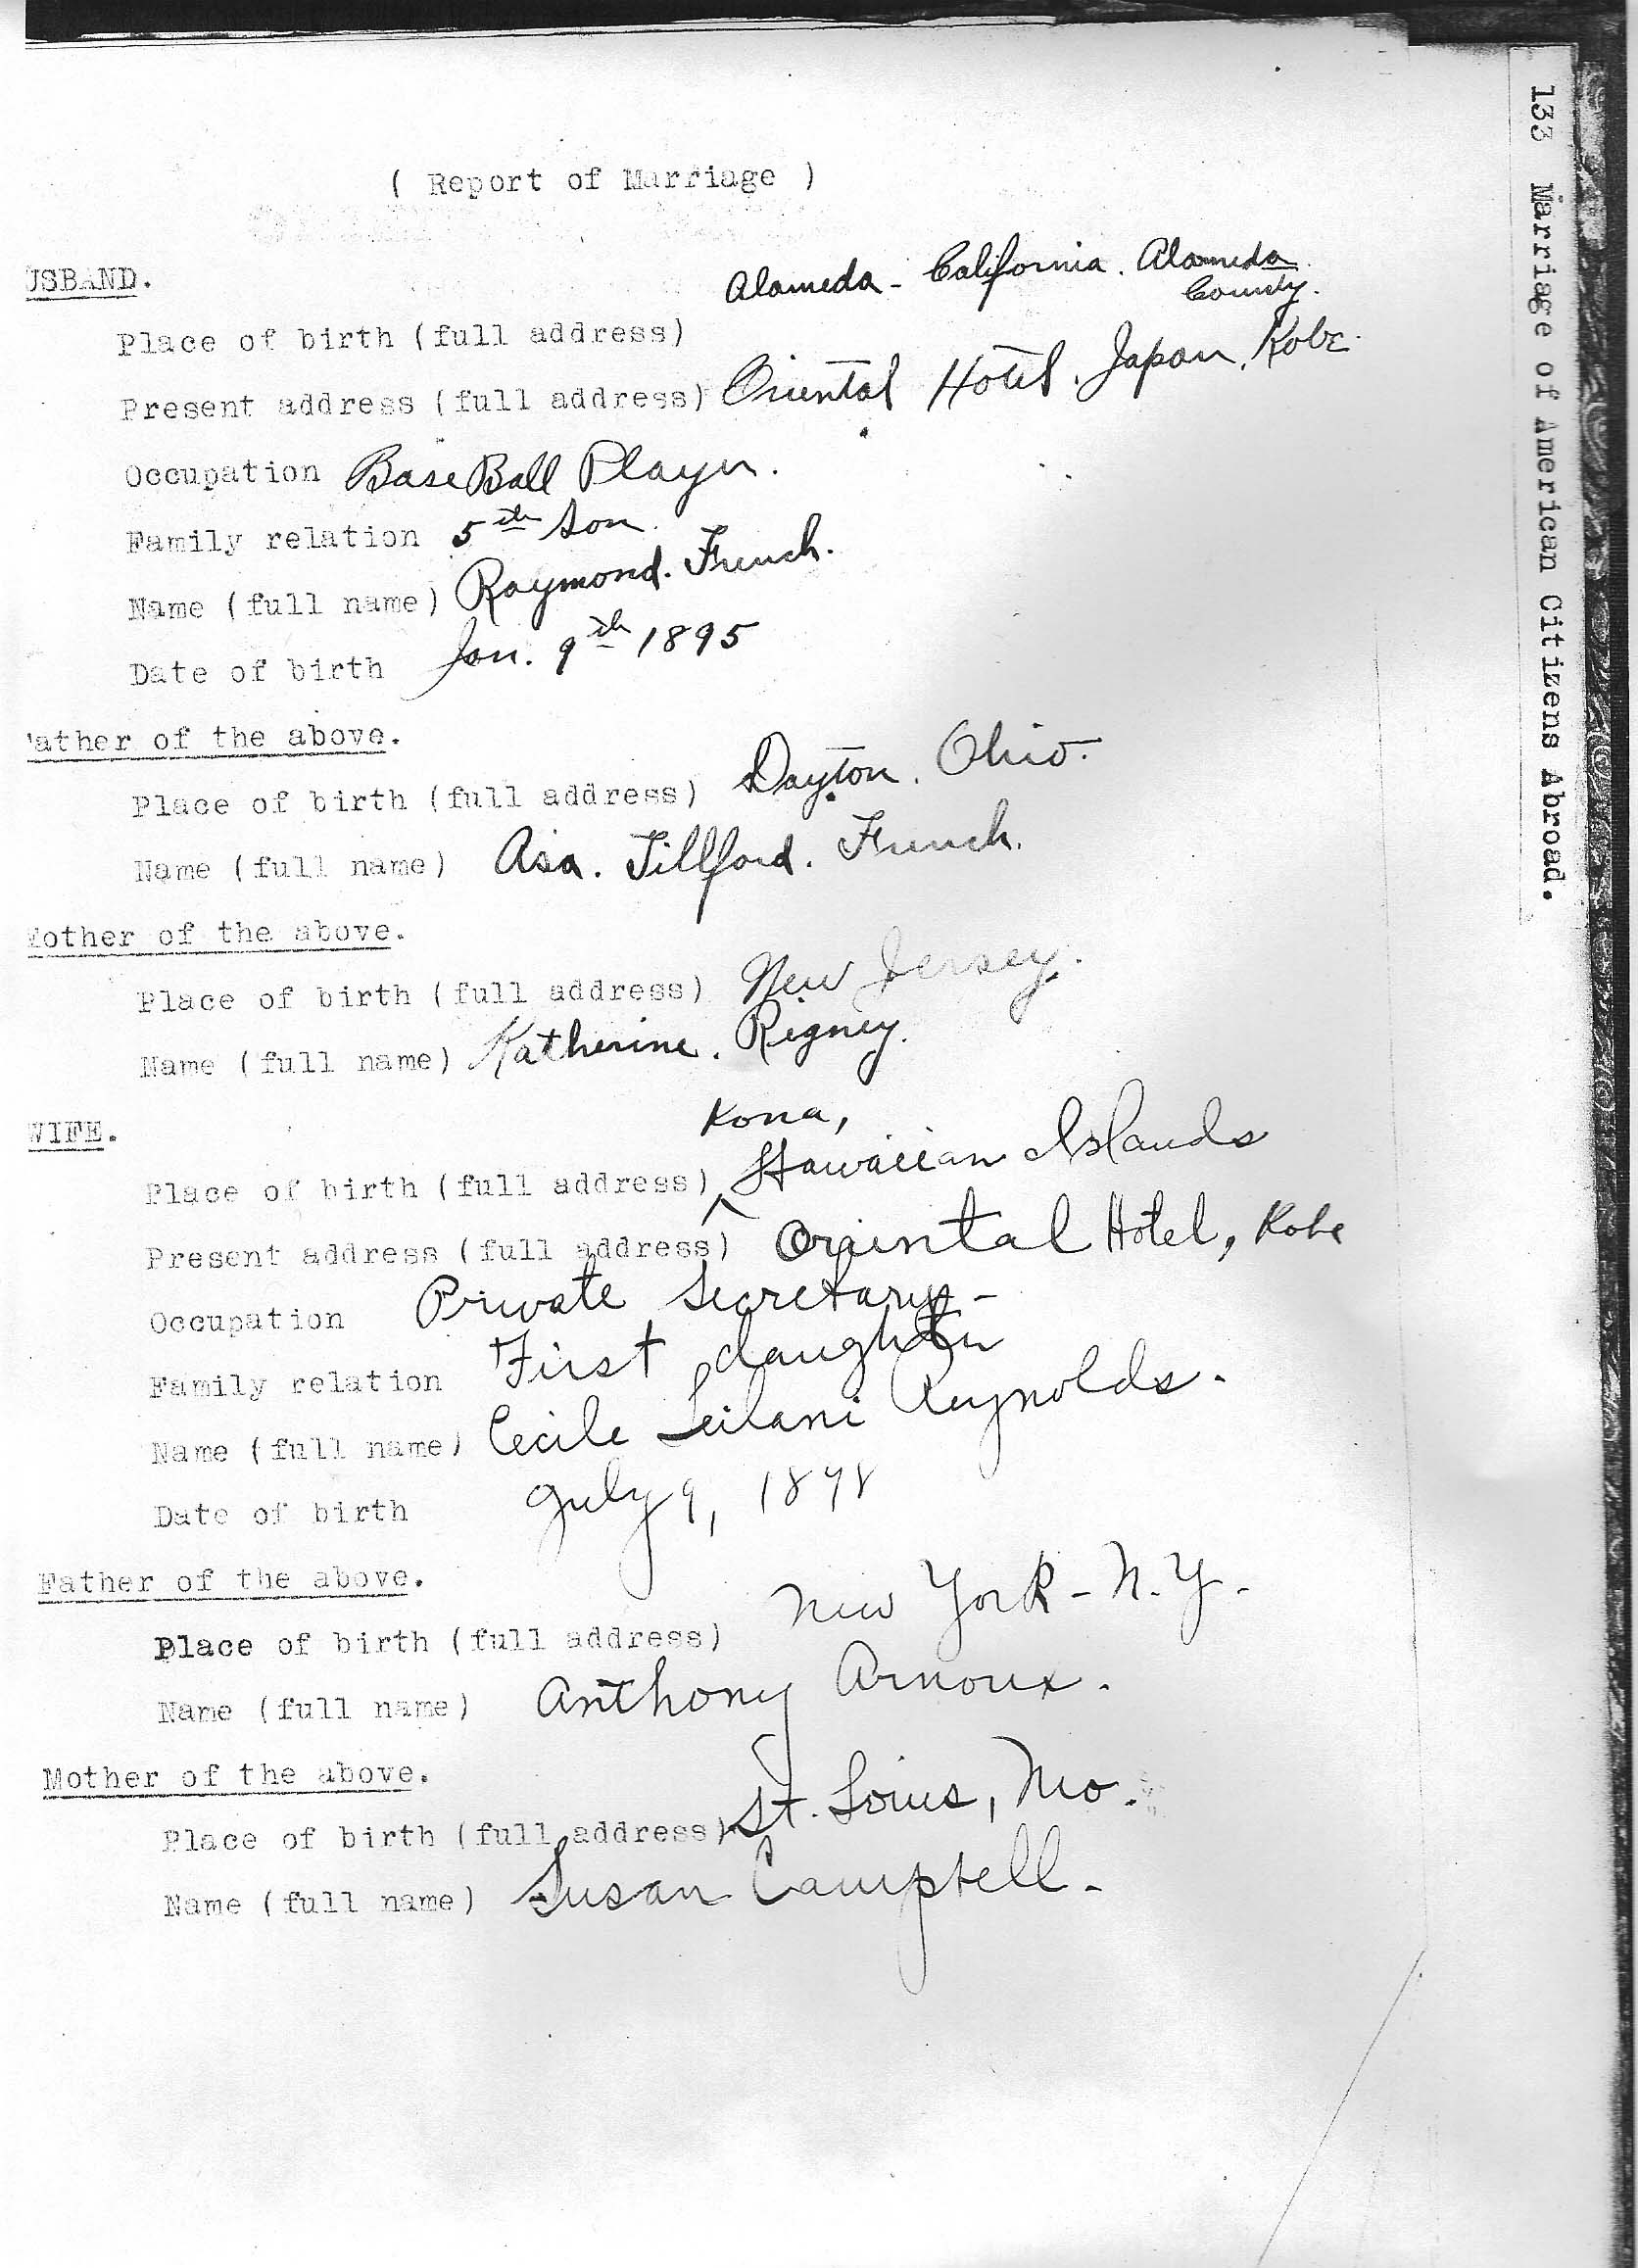 ( Report of Marriage )
USBAND.
Place of birth (full address) Alameda - California. Alameda
County.
Present address (full address) Oriental Hotel. Japan. Kobe.
Occupation Base Ball Player.
Family relation 5th Son.
Name (full name) Raymond. French.
Date of birth Jan. 9th 1895
ather of the above.
Place of birth (full address) Dayton. Ohio.
Name (full name) Asa. Tillford. French.
Mother of the above.
Place of birth (full address) New Jersey.
Name (full name) Katherine. Rigney.
WIFE.
Kona,
Place of birth (full address) Hawaiian Islands
Present address (full address) Oriental Hotel, Kobe
Occupation Private Secretary -
Family relation First daughter
Name (full name) Cecile Leilani Reynolds.
Date of birth July 9, 1898
Father of the above.
Place of birth (full address) New York - N.Y.
Name (full name) Anthony Arnoux.
Mother of the above.
Place of birth (full address) St. Louis, Mo.
Name (full name) Susan Campbell.
133 Marriage of American Citizens Abroad.